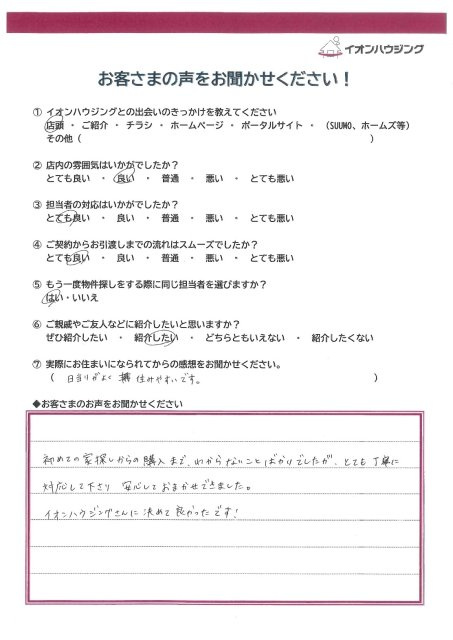 イオンハウジング
お客さまの声をお聞かせください！
① イオンハウジングとの出会いのきっかけを教えてください
店頭 ・ ご紹介 ・ チラシ ・ ホームページ ・ ポータルサイト ・ （SUUMO、ホームズ等）
その他（ ）
② 店内の雰囲気はいかがでしたか？
とても良い ・ 良い ・ 普通 ・ 悪い ・ とても悪い
③ 担当者の対応はいかがでしたか？
とても良い ・ 良い ・ 普通 ・ 悪い ・ とても悪い
④ ご契約からお引渡しまでの流れはスムーズでしたか？
とても良い ・ 良い ・ 普通 ・ 悪い ・ とても悪い
⑤ もう一度物件探しをする際に同じ担当者を選びますか？
はい ・ いいえ
⑥ ご親戚やご友人などに紹介したいと思いますか？
ぜひ紹介したい ・ 紹介したい ・ どちらともいえない ・ 紹介したくない
⑦ 実際にお住まいになられてからの感想をお聞かせください。
（ 日当りがよく 住みやすいです。 ）
◆お客さまのお声をお聞かせください
初めての家探しからの購入まで、わからないことばかりでしたが、とても丁寧に
対応して下さり 安心しておまかせできました。
イオンハウジングさんに決めて良かったです！